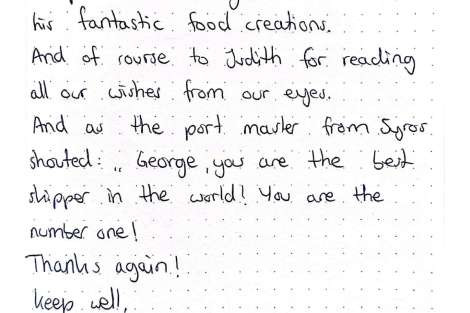 his fantastic food creations.
And of course to Judith for reading
all our wishes from our eyes.
And as the port master from Syros
shouted: „ George, you are the best
skipper in the world! You are the
number one!
Thanks again!
keep well,